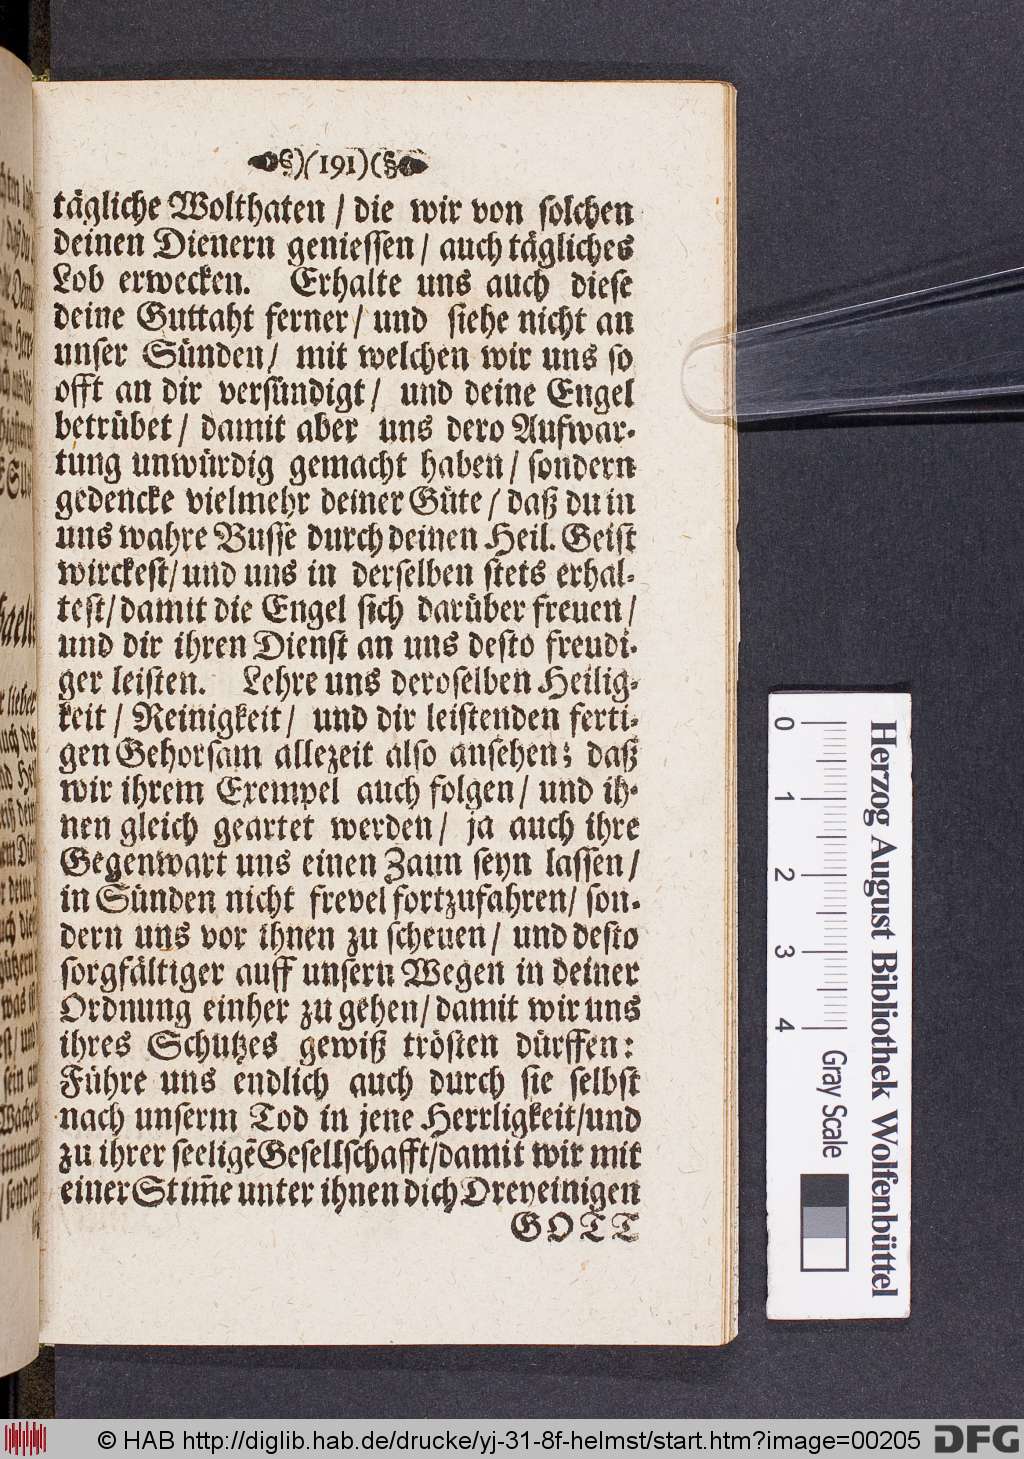 )(191)(
tägliche Wolthaten / die wir von solchen
deinen Dienern geniessen / auch tägliches
Lob erwecken. Erhalte uns auch diese
deine Guttaht ferner / und siehe nicht an
unser Sünden / mit welchen wir uns so
offt an dir versündigt / und deine Engel
betrübet / damit aber uns dero Aufwar-
tung unwürdig gemacht haben / sondern
gedencke vielmehr deiner Güte / daß du in
uns wahre Busse durch deinen Heil. Geist
wirckest / und uns in derselben stets erhal-
test / damit die Engel sich darüber freuen /
und dir ihren Dienst an uns desto freudi-
ger leisten. Lehre uns deroselben Heilig-
keit / Reinigkeit / und dir leistenden ferti-
gen Gehorsam allezeit also ansehen; daß
wir ihrem Exempel auch folgen / und ih-
nen gleich geartet werden / ja auch ihre
Gegenwart uns einen Zaun seyn lassen /
in Sünden nicht frevel fortzufahren / son-
dern uns vor ihnen zu scheuen / und desto
sorgfältiger auff unsern Wegen in deiner
Ordnung einher zu gehen / damit wir uns
ihres Schutzes gewiß trösten dürffen:
Führe uns endlich auch durch sie selbst
nach unserm Tod in jene Herrligkeit / und
zu ihrer seeligẽ Gesellschafft / damit wir mit
einer Stim̃e unter ihnen dich Dreyeinigen
GOTT
0 1 2 3 4
Gray Scale
Herzog August Bibliothek Wolfenbüttel
© HAB http://diglib.hab.de/drucke/yj-31-8f-helmst/start.htm?image=00205
DFG